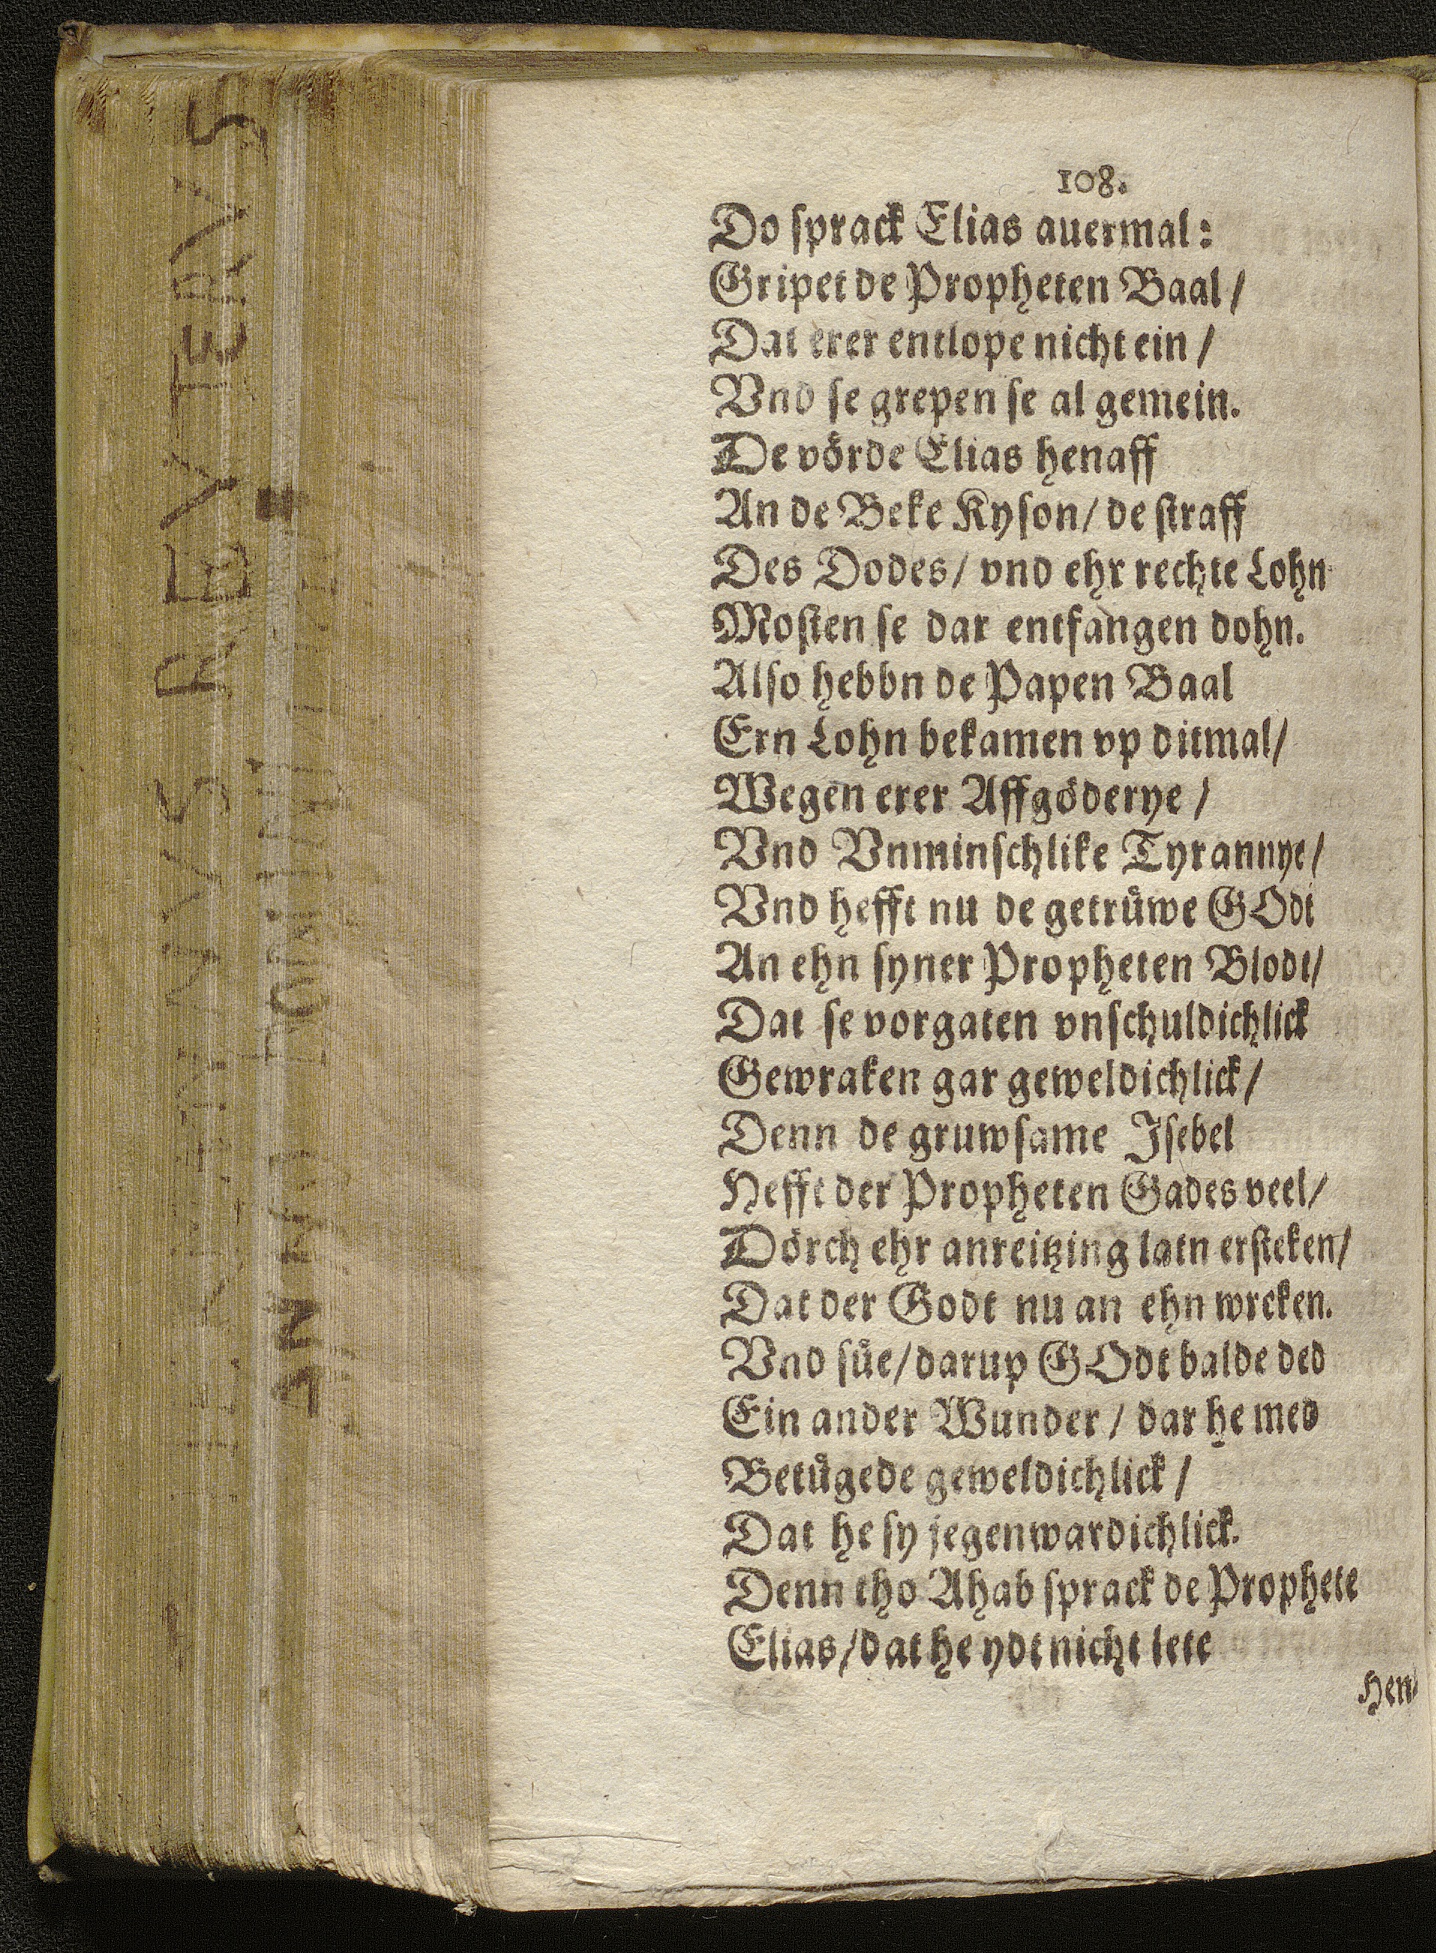 108.
Do sprack Elias auermal:
Gripet de Propheten Baal /
Dat erer entlope nicht ein /
Vnd se grepen se al gemein.
De vörde Elias henaff
An de Beke Kyson / de straff
Des Dodes / vnd ehr rechte Lohn
Mosten se dar entfangen dohn.
Also hebbn de Papen Baal
Ern Lohn bekamen vp ditmal /
Wegen erer Affgöderye /
Vnd Vnminschlike Tyrannye /
Vnd hefft nu de getrüwe GOdt
An ehn syner Propheten Blodt /
Dat se vorgaten vnschuldichlick
Gewraken gar geweldichlick /
Denn de gruwsame Isebel
Hefft der Propheten Gades veel /
Dörch ehr anreitzing latn ersteken /
Dat der Godt nu an ehn wreken.
Vnd süe / darup GOdt balde ded
Ein ander Wunder / dar he med
Betügede geweldichlick /
Dat he sy jegenwardichlick.
Denn tho Ahab sprack de Prophete
Elias / dat he ydt nicht lete
Hen
REVTERVS
ANNO DOMINI